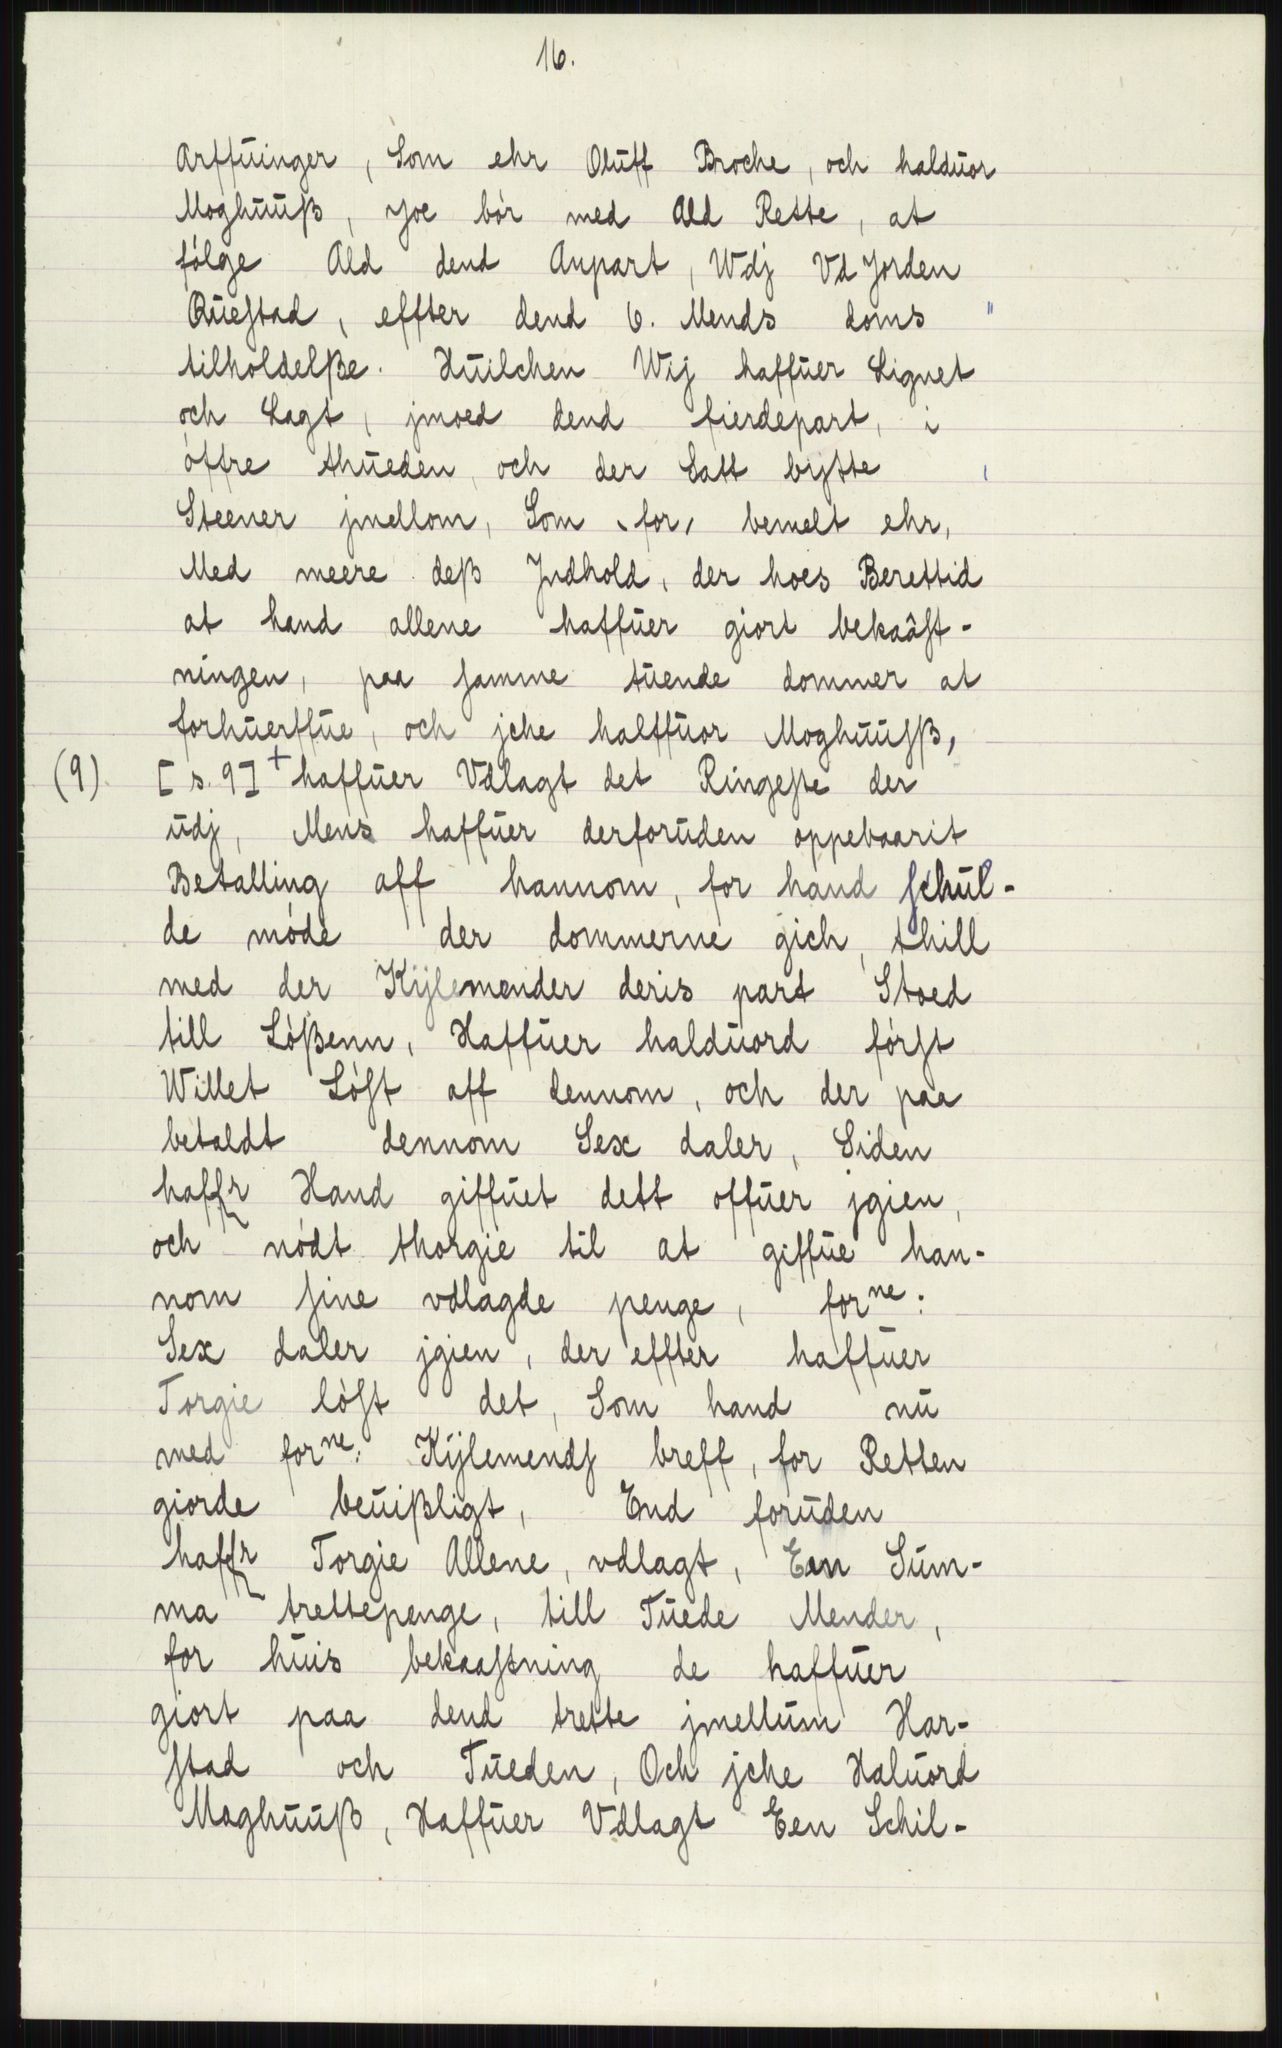 16.
Arffuinger, Som ehr Oluff Broche, och halduor
Moghuuß, Joe bór med Ald Rette, at
fólge Ald dend Anpart, Wdj Vd Jorden
Questad, effter dend 6. Mends doms "
tilholdelße. Huilchen Wij haffuer Lignet
och Lagt, jmoed dend fierdepart, i
óffre thueden, och der Satt bytte
Steener jmellom, Som for, bemelt ehr,
Med meere deß Jndhold, der hoes Berettid
at hand allene haffuer giort bekaâst-
ningen, paa samme tuende dommer at
forhuerffue, och jche halffuor Moghuusß,
(9) [s. 9] + haffuer Vdlagt det Ringeste der
udj, Mens haffuer derforuden oppebaarit
Betalling aff hannom, for hand schul-
de móde der dommerne gich, thill
med der Kijlemender deris part Stoed
till Lóßenn, Haffuer halduord fórst
Willet Lóst aff dennom, och der paa
betaldt dennom Sex daler, Siden
haffr Hand giffuet dett offuer jgien,
och nódt thorgie til at giffue han-
nom sine vdlagde penge, forne:
Sex daler jgien, der effter haffuer
Torgie lóst det, Som hand nu
med forne: Kijlemends breff, for Retten
giorde beuißligt, End foruden
haffr Torgie Allene, vdlagt, Een Sum-
ma trettepenge, till Tuede Mender,
for huis bekaastning de haffuer
giort paa dend trette jmellum Har-
stad och Tueden, Och jche Haluord
Moghuuß, Haffuer Vdlagt Een Schil-